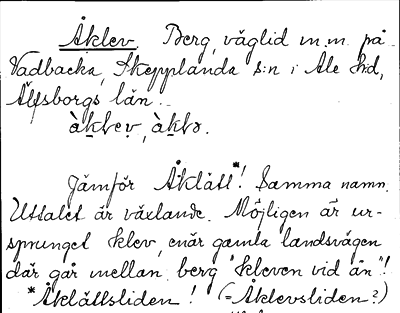 Åklev. Berg, väglid m.m. på
Vadbacka, Skepplanda s:n i Ale hd,
Älfsborgs län.
àk̠lev̥, àk̠lə.
Jämför Åklätt*! Samma namn.
Uttalet är växlande. Möjligen är ur-
sprunget klev, enär gamla landsvägen
där går mellan berg "kleven vid ån"!
*Åklättsliden! (=Åklevsliden?)